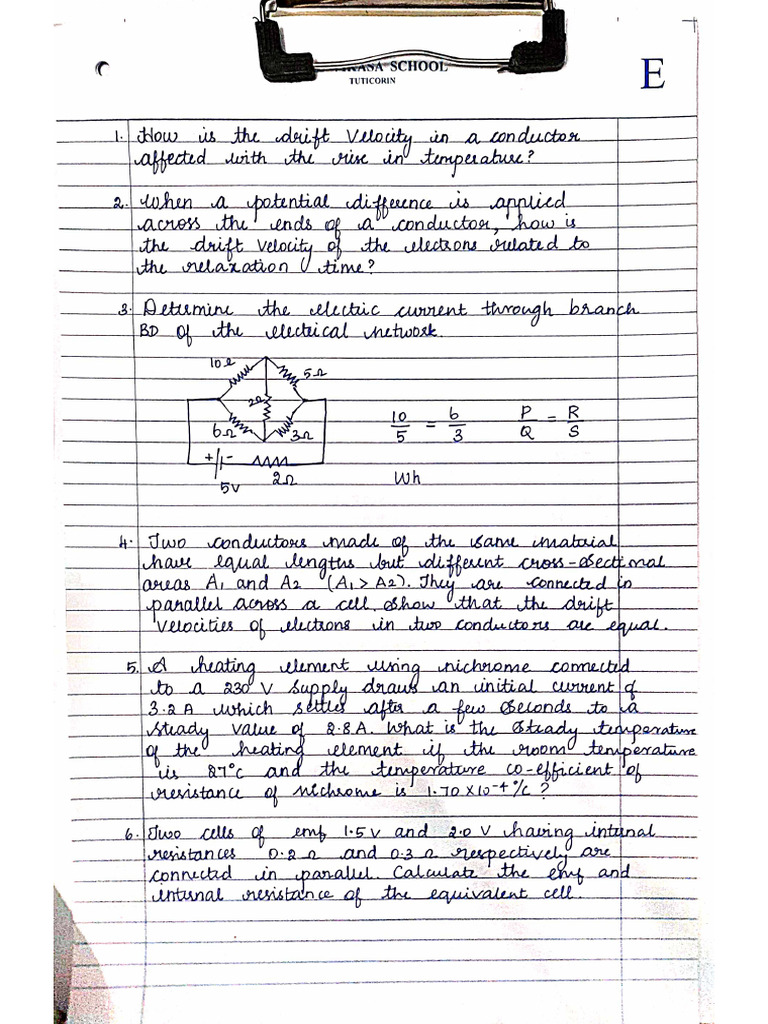 SCHOOL
TUTICORIN
E
1. How is the drift velocity in a conductor
affected with the rise in temperature?
2. When a potential difference is applied
across the ends of a conductor, how is
the drift velocity of the electrons related to
the relaxation time?
3. Determine the electric current through branch
BD of the electrical network.
10Ω
5Ω
2Ω
10/5 = 6/3   P/Q = R/S
6Ω
3Ω
+ -
5V
2Ω
Wh
4. Two conductors made of the same material
have equal lengths but different cross-sectional
areas A1 and A2 (A1 > A2). They are connected in
parallel across a cell. Show that the drift
velocities of electrons in two conductors are equal.
5. A heating element using nichrome connected
to a 230 V supply draws an initial current of
3.2 A which settles after a few seconds to a
steady value of 2.8A. What is the steady temperature
of the heating element if the room temperature
is 27°C and the temperature co-efficient of
resistance of nichrome is 1.70 x 10⁻⁴ °/C ?
6. Two cells of emf 1.5 V and 2.0 V having internal
resistances 0.2 Ω and 0.3 Ω respectively are
connected in parallel. Calculate the emf and
internal resistance of the equivalent cell.